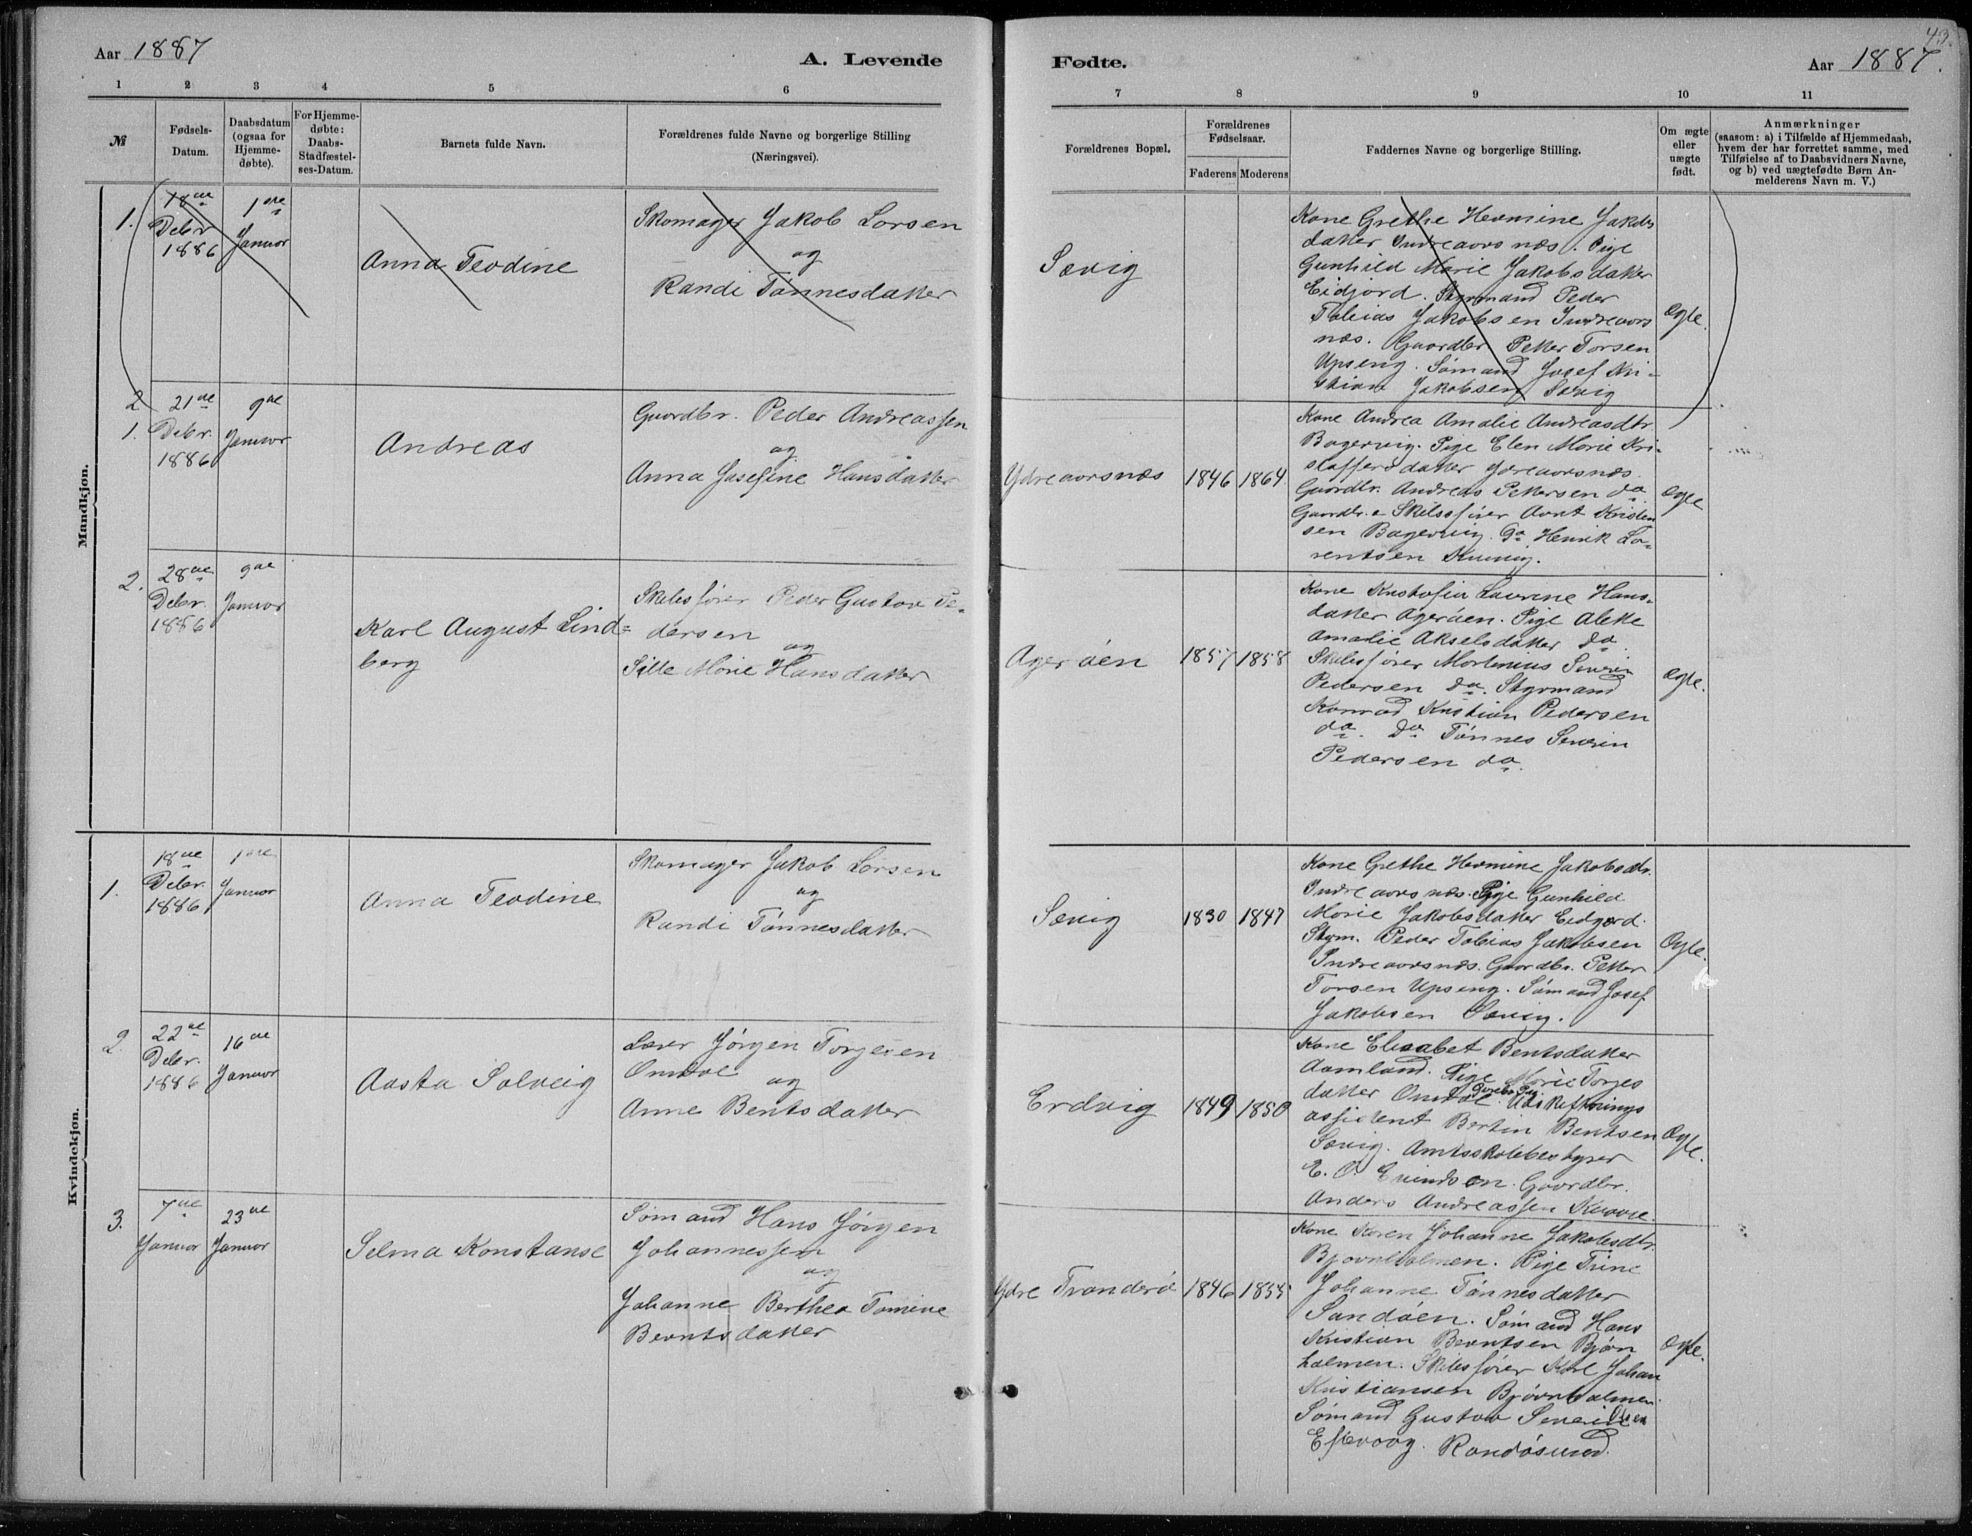 Aar 1887
A. Levende
Fødte.
Aar 1887.
43.
1
2
3
4
5
6
7
8
9
10
11
№
Fødsels-
Datum.
Daabsdatum
(ogsaa for
Hjemme-
døbte).
For Hjemme-
døbte:
Daabs-
Stadfæstel-
ses-Datum.
Barnets fulde Navn.
Forældrenes fulde Navne og borgerlige Stilling
(Næringsvei).
Forældrenes Bopæl.
Forældrenes
Fødselsaar.
Faderens
Moderens
Faddernes Navne og borgerlige Stilling.
Om ægte
eller
uægte
født.
Anmærkninger
(saasom: a) i Tilfælde af Hjemmedaab,
hvem der har forrettet samme, med
Tilføielse af to Daabsvidners Navne,
og b) ved uægtefødte Børn An-
melderens Navn m. V.)
Mandkjøn.
1.
18de
Debr
1886
1ste
Januar
Anna Teodine
Skomager Jakob Larsen
og
Randi Tønnesdatter
Sævig
Kone Grethe Hermine Jakobs
datter Indreaarsnæs. Pige
Gunhild Marie Jakobsdatter
Eidjord. Styrmand Peder
Tobias Jakobsen Indreaars
næs. Gaardbr Petter Torsen
Upseng. Sømand Josef Kri-
stian Jakobsen Sævig
Ægte.
2
1.
21de
Debr.
1886
9de
Januar
Andreas
Gaardbr. Peder Andreassen
og
Anna Josefine Hansdatter
Ydreaarsnæs
1846
1864
Kone Andrea Amalie Andreasdtr.
Bagervig. Pige Elen Marie Kri-
stoffersdatter Ydreaarsnæs.
Gaardbr. Andreas Pettersen do
Gaardbr. & Skibsfører Arnt Kristen
sen Bagervig. do Henrik La-
rentsen
Ægte
2.
28de
Debr.
1886
9de
Januar
Karl August Lind=
berg
Skibsfører Peder Gustav Pe-
dersen
og
Sille Marie Hansdatter
Agerøen
1857
1858
Kone Kristofia Laurine Hans-
datter Agerøen. Pige Alette
Amalie Akselsdatter do.
Skibsfører Martinius Severin
Pedersen do. Styrmand
Konrad Kristian Pedersen
do. do Tønnes Severin
Pedersen do.
Ægte.
Kvindekjøn.
1.
18de
Debr.
1886
1ste
Januar
Anna Teodine
Skomager Jakob Larsen
og
Randi Tønnesdatter
Sævig
1830
1847
Kone Grethe Hermine Jakobsdtr.
Indreaarsnæs. Pige Gunhild
Marie Jakobsdatter Eidjord.
Styrm. Peder Tobias Jakobsen
Indreaarsnæs. Gaardbr. Petter
Torsen Upseng. Sømand Josef
Jakobsen Sævig.
Ægte.
2.
22de
Debr.
1886
16de
Januar
Aasta Solveig
Lærer Jørgen Torgersen
Omdal
og
Anne Bentsdatter
Erdvig
1849
1850
Kone Elisabet Bentsdatter
Aamland. Pige Marie Torges
datter Omdal. Udskiftnings
assistent Bertin Bentsen
Sævig. Amtsskolebestyrer
E. O. Evindsen. Gaardbr.
Anders Andreassen
Ægte.
3.
7de
Januar
23de
Januar
Selma Konstanse
Sømand Hans Jørgen
Johannessen
og
Johanne Berthea Tomine
Berntsdatter
Ydre Tranderø
1846
1855
Kone Karen Johanne Jakobsdtr.
Bjørnholmen. Pige Trine
Johanne Tønnesdatter
Sandøen. Sømand Hans
Kristian Berntsen Bjørn
holmen. Skibsfører Karl Johan
Kristiansen Bjørnholmen.
Sømand Gustav Severin Olsen
Eftevaag. Randøsund.
Ægte.